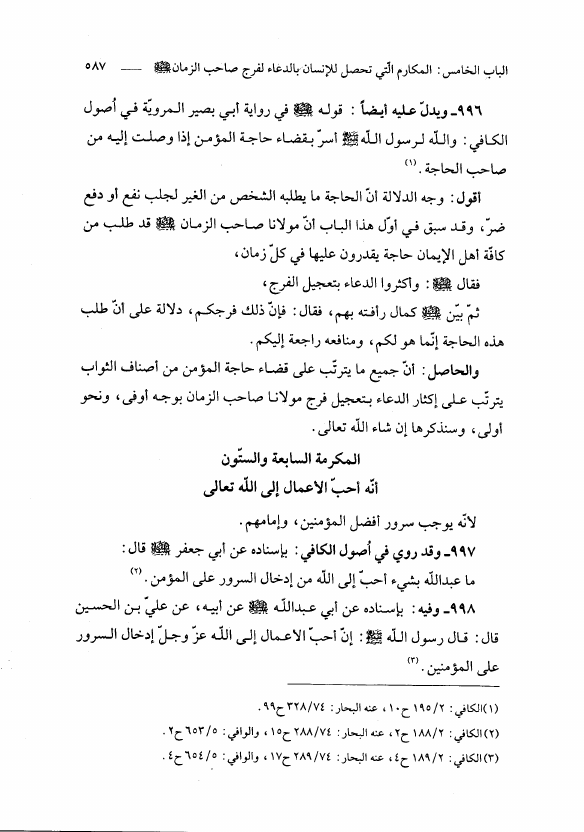 الباب الخامس: المكارم الّتي تحصل للإنسان بالدعاء لفرج صاحب الزمان ﷺ — ٥٨٧
٩٩٦ـ ويدلّ عليه أيضاً: قوله ﷺ في رواية أبي بصير المرويّة في أصول
الكافي: والله لرسول الله ﷺ أسرّ بقضاء حاجة المؤمن إذا وصلت إليه من
صاحب الحاجة. (١)
أقول: وجه الدلالة أنّ الحاجة ما يطلبه الشخص من الغير لجلب نفع أو دفع
ضرّ، وقد سبق في أوّل هذا الباب أنّ مولانا صاحب الزمان ﷺ قد طلب من
كافّة أهل الإيمان حاجة يقدرون عليها في كلّ زمان،
فقال ﷺ: وأكثروا الدعاء بتعجيل الفرج،
ثمّ بيّن ﷺ كمال رأفته بهم، فقال: فإنّ ذلك فرجكم، دلالة على أنّ طلب
هذه الحاجة إنّما هو لكم، ومنافعه راجعة إليكم.
والحاصل: أنّ جميع ما يترتّب على قضاء حاجة المؤمن من أصناف الثواب
يترتّب على إكثار الدعاء بتعجيل فرج مولانا صاحب الزمان بوجه أوفى، ونحو
أولى، وسنذكرها إن شاء الله تعالى.
المكرمة السابعة والستّون
أنّه أحبّ الاعمال إلى الله تعالى
لانّه يوجب سرور أفضل المؤمنين، وإمامهم.
٩٩٧ـ وقد روي في أصول الكافي: بإسناده عن أبي جعفر ﷺ قال:
ما عبدالله بشيء أحبّ إلى الله من إدخال السرور على المؤمن. (٢)
٩٩٨ـ وفيه: بإسناده عن أبي عبدالله ﷺ عن أبيه، عن عليّ بن الحسين
قال: قال رسول الله ﷺ: إنّ أحبّ الاعمال إلى الله عزّ وجلّ إدخال السرور
على المؤمنين. (٣)
(١) الكافي: ١٩٥/٢ ح١٠، عنه البحار: ٣٢٨/٧٤ ح٩٩.
(٢) الكافي: ١٨٨/٢ ح٢، عنه البحار: ٢٨٨/٧٤ ح١٥، والوافي: ٦٥٣/٥ ح٢.
(٣) الكافي: ١٨٩/٢ ح٤، عنه البحار: ٢٨٩/٧٤ ح١٧، والوافي: ٦٥٤/٥ ح٤.